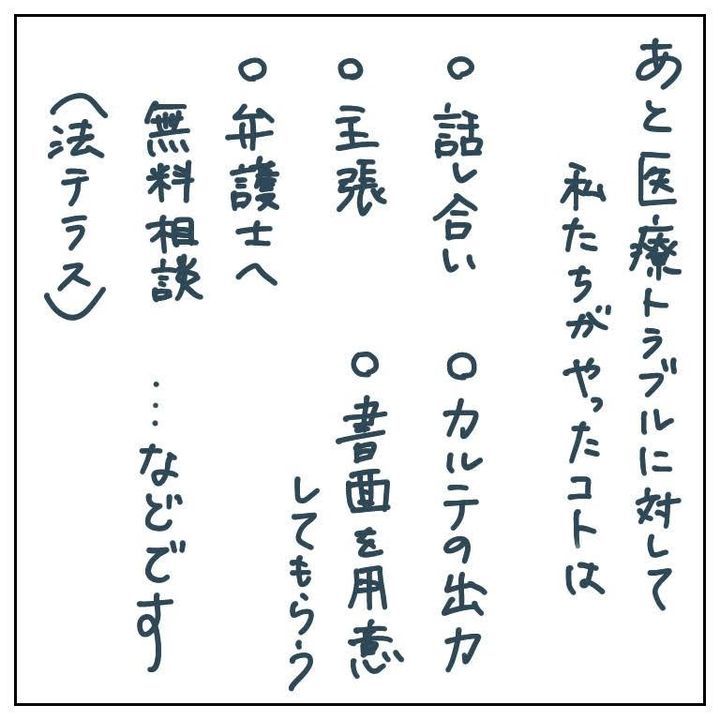 あと医療トラブルに対して
私たちがやったコトは
○ 話し合い
○ 主張
○ 弁護士へ
無料相談
（法テラス）
○ カルテの出力
○ 書面を用意
してもらう
…などです